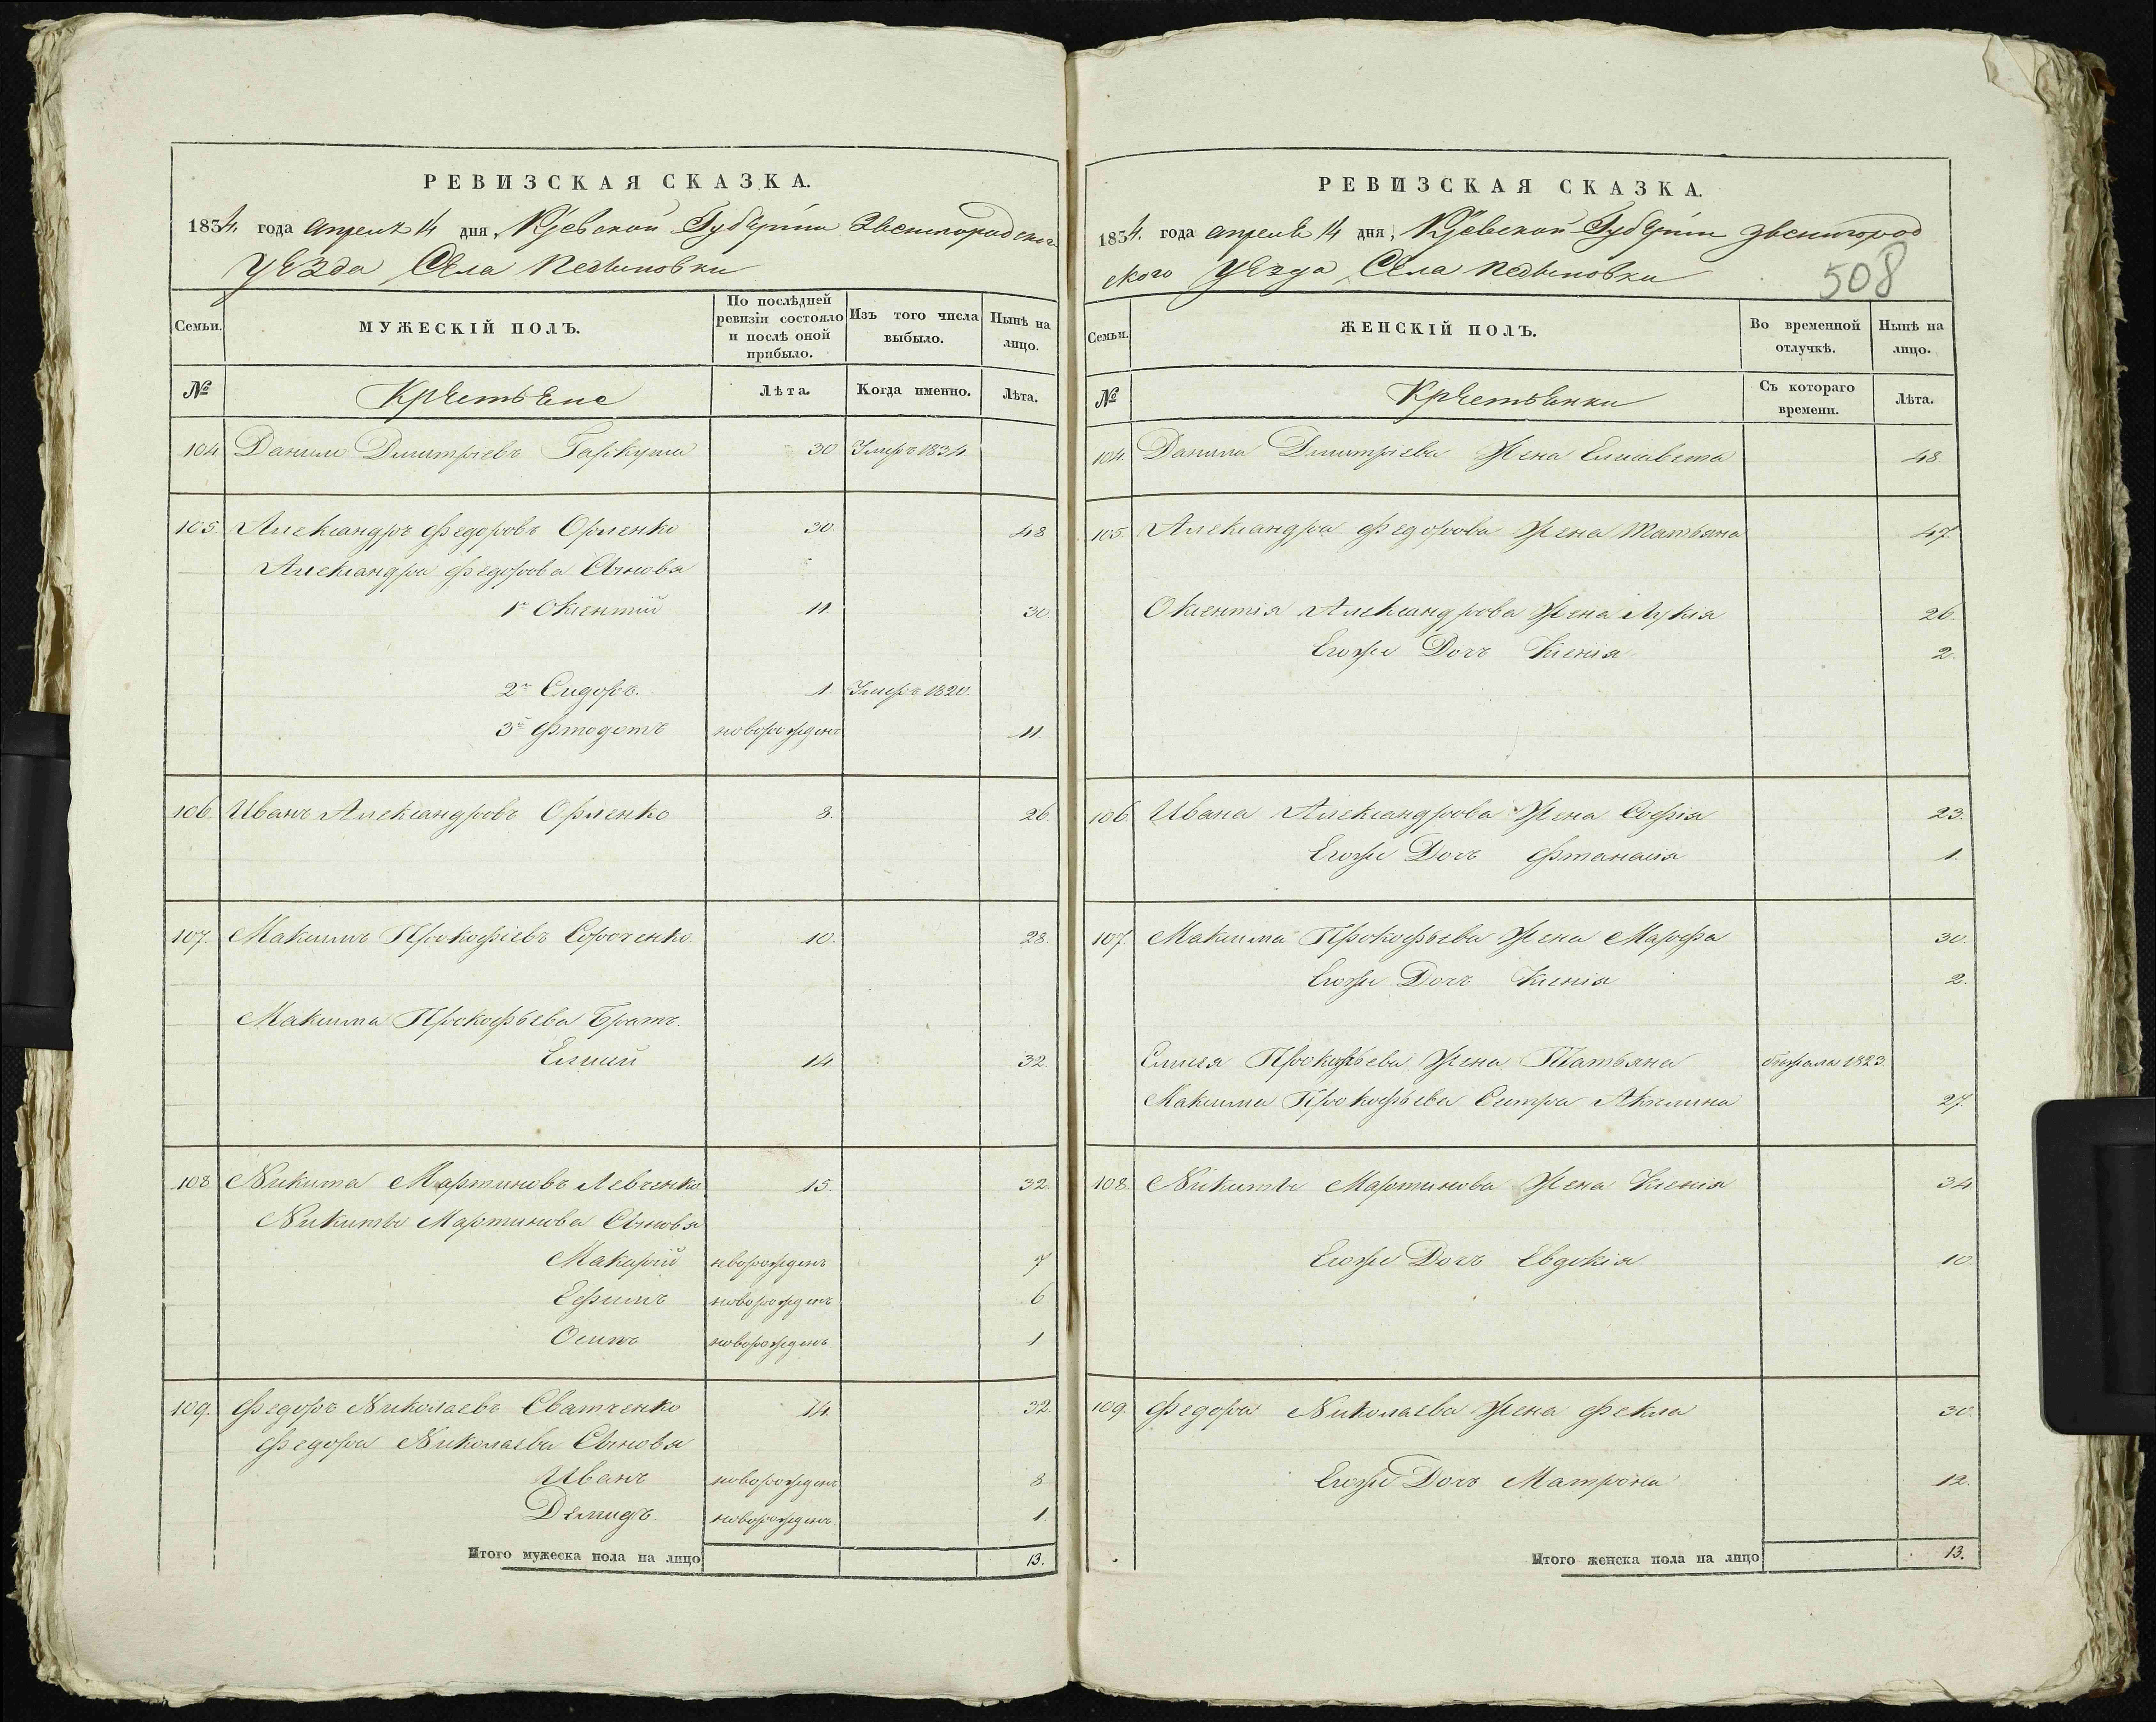 РЕВИЗСКАЯ СКАЗКА.
1834. года апреля 14 дня, Кіевской Губерніи Звенигородског
Уезда Села Педыновки
Семьи.
МУЖЕСКІЙ ПОЛЪ.
По послѣдней ревизіи состояло и послѣ оной прибыло.
Изъ того числа выбыло.
Нынѣ на лицо.
№
Крестьяне
Лѣта.
Когда именно.
Лѣта.
104 Данило Дмитріевъ Гаркуша 30 Умеръ 1834
105. Александръ Федоровъ Орленко 30. 48
Александра Федорова Сыновья
1й Оксентій 11 30.
2й Сидоръ. 1. Умеръ 1820.
3й Фтодотъ новорожденъ 11.
106 Иванъ Александровъ Орленко 8. 26
107. Максимъ Прокофіевъ Сороченко. 10. 28.
Максима Прокофьева Братъ.
Елисей 14. 32.
108 Никита Мартиновъ Левченко 15. 32.
Никиты Мартинова Сыновья
Макарій нворожденъ 7
Ефимъ новорожденъ 6
Осипъ новорожденъ 1
109. Федоръ Николаевъ Сватченко 14. 32.
Федора Николаева Сыновья
Иванъ новорожденъ 8
Демидъ. новорожденъ 1.
Итого мужеска пола на лицо 13.
РЕВИЗСКАЯ СКАЗКА.
1834. года апреля 14 дня, Кіевской Губерніи Звенигород
ского Уезда Села Педыновки
508
Семьи.
ЖЕНСКІЙ ПОЛЪ.
Во временной отлучкѣ.
Нынѣ на лицо.
№
Крестьянки
Съ котораго времени.
Лѣта.
104. Данила Дмитріева Жена Елисавета 48.
105. Александра Федорова Жена Татьяна 47.
Оксентія Александрова Жена Лукія 26.
Егоже Дочь Ксенія 2.
106 Ивана Александрова Жена Софія 23.
Егоже Дочь Фтанасія 1.
107 Максима Прокофьева Жена Марфа 30.
Егоже Дочь Ксенія 2.
Елисея Прокофьева Жена Татьяна бежала 1823.
Максима Прокофьева Сестра Акилина 27.
108. Никиты Мартинова Жена Ксенія 34
Егоже Дочь Евдокія 10.
109. Федора Николаева Жена Фекла 30.
Егоже Дочь Матрона 12.
Итого женска пола на лицо 13.